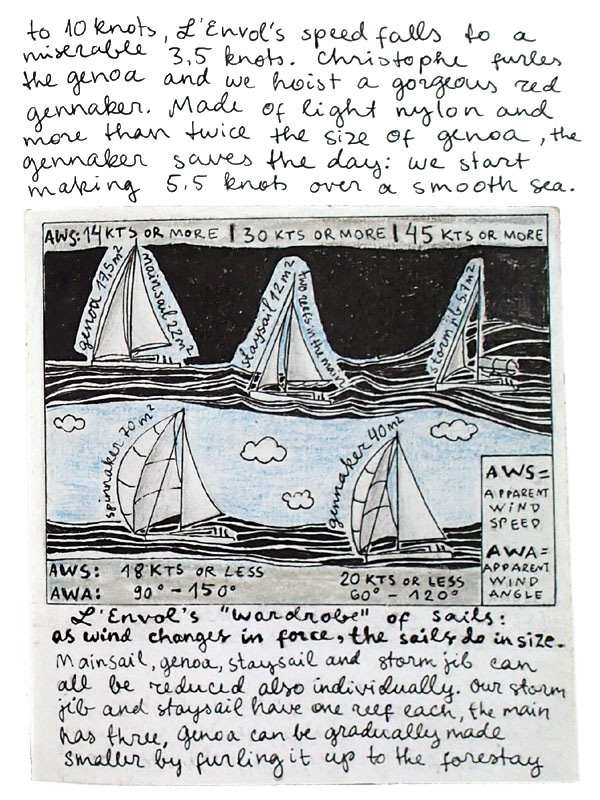 to 10 knots, L'Envol's speed falls to a
miserable 3,5 knots. Christophe furles
the genoa and we hoist a gorgeous red
gennaker. Made of light nylon and
more than twice the size of genoa, the
gennaker saves the day: we start
making 5.5 knots over a smooth sea.
AWS: 14 KTS OR MORE | 30 KTS OR MORE | 45 KTS OR MORE
genoa 17,5 m²
mainsail 22 m²
staysail 12 m²
reefs in the main
storm jib 5.7 m²
spinnaker 70 m²
gennaker 40 m²
AWS: 18 KTS OR LESS
AWA: 90° - 150°
20 KTS OR LESS
60° - 120°
AWS=
APPARENT
WIND
SPEED
AWA=
APPARENT
WIND
ANGLE
L'Envol's "wardrobe" of sails:
as wind changes in force, the sails do in size.
Mainsail, genoa, staysail and storm jib can
all be reduced also individually. Our storm
jib and staysail have one reef each, the main
has three, genoa can be gradually made
smaller by furling it up to the forestay